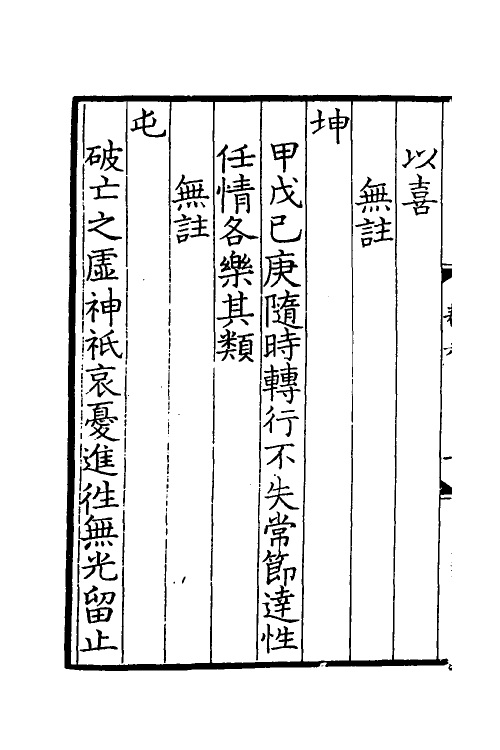 以喜
無註
坤
甲戊已庚隨時轉行不失常節達性
任情各樂其類
無註
屯
破亡之虛神祇哀憂進徃無光留止